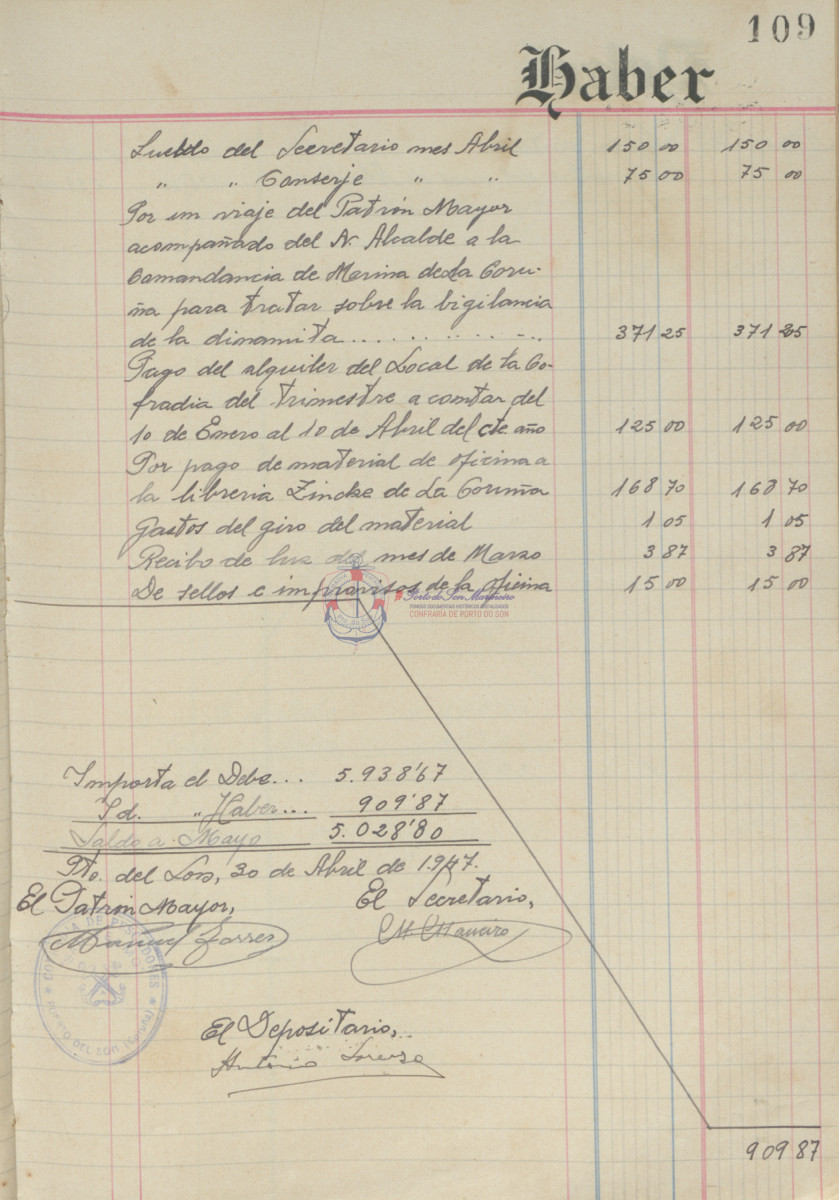 109
Haber
Sueldo del Secretario mes Abril 150 00 150 00
" " Conserje " " 75 00 75 00
Por un viaje del Patrón Mayor
acompañado del Sr. Alcalde a la
Comandancia de Marina de La Coru-
ña para tratar sobre la bigilancia
de la dinamita............ 371 25 371 25
Pago del alquiler del Local de la Co-
fradia del trimestre a contar del
10 de Enero al 10 de Abril del cte año 125 00 125 00
Por pago de material de oficina a
la libreria Zincke de La Coruña 168 70 168 70
Gastos del giro del material 1 05 1 05
Recibo de luz del mes de Marzo 3 87 3 87
De sellos e improvisos de la oficina 15 00 15 00
#PortodoSonMariñeiro
FONDOS DOCUMENTAIS HISTÓRICOS DIXITALIZADOS
CONFRARÍA DE PORTO DO SON
Importa el Debe... 5.938'67
Id. " Haber... 909'87
Saldo a Mayo 5.028'80
Pto. del Son, 30 de Abril de 1.947.
El Patrón Mayor, El Secretario,
Manuel M. Maneiro
El Depositario,
Antonio Lorenzo
PUERTO DEL SON (Coruña)
909 87